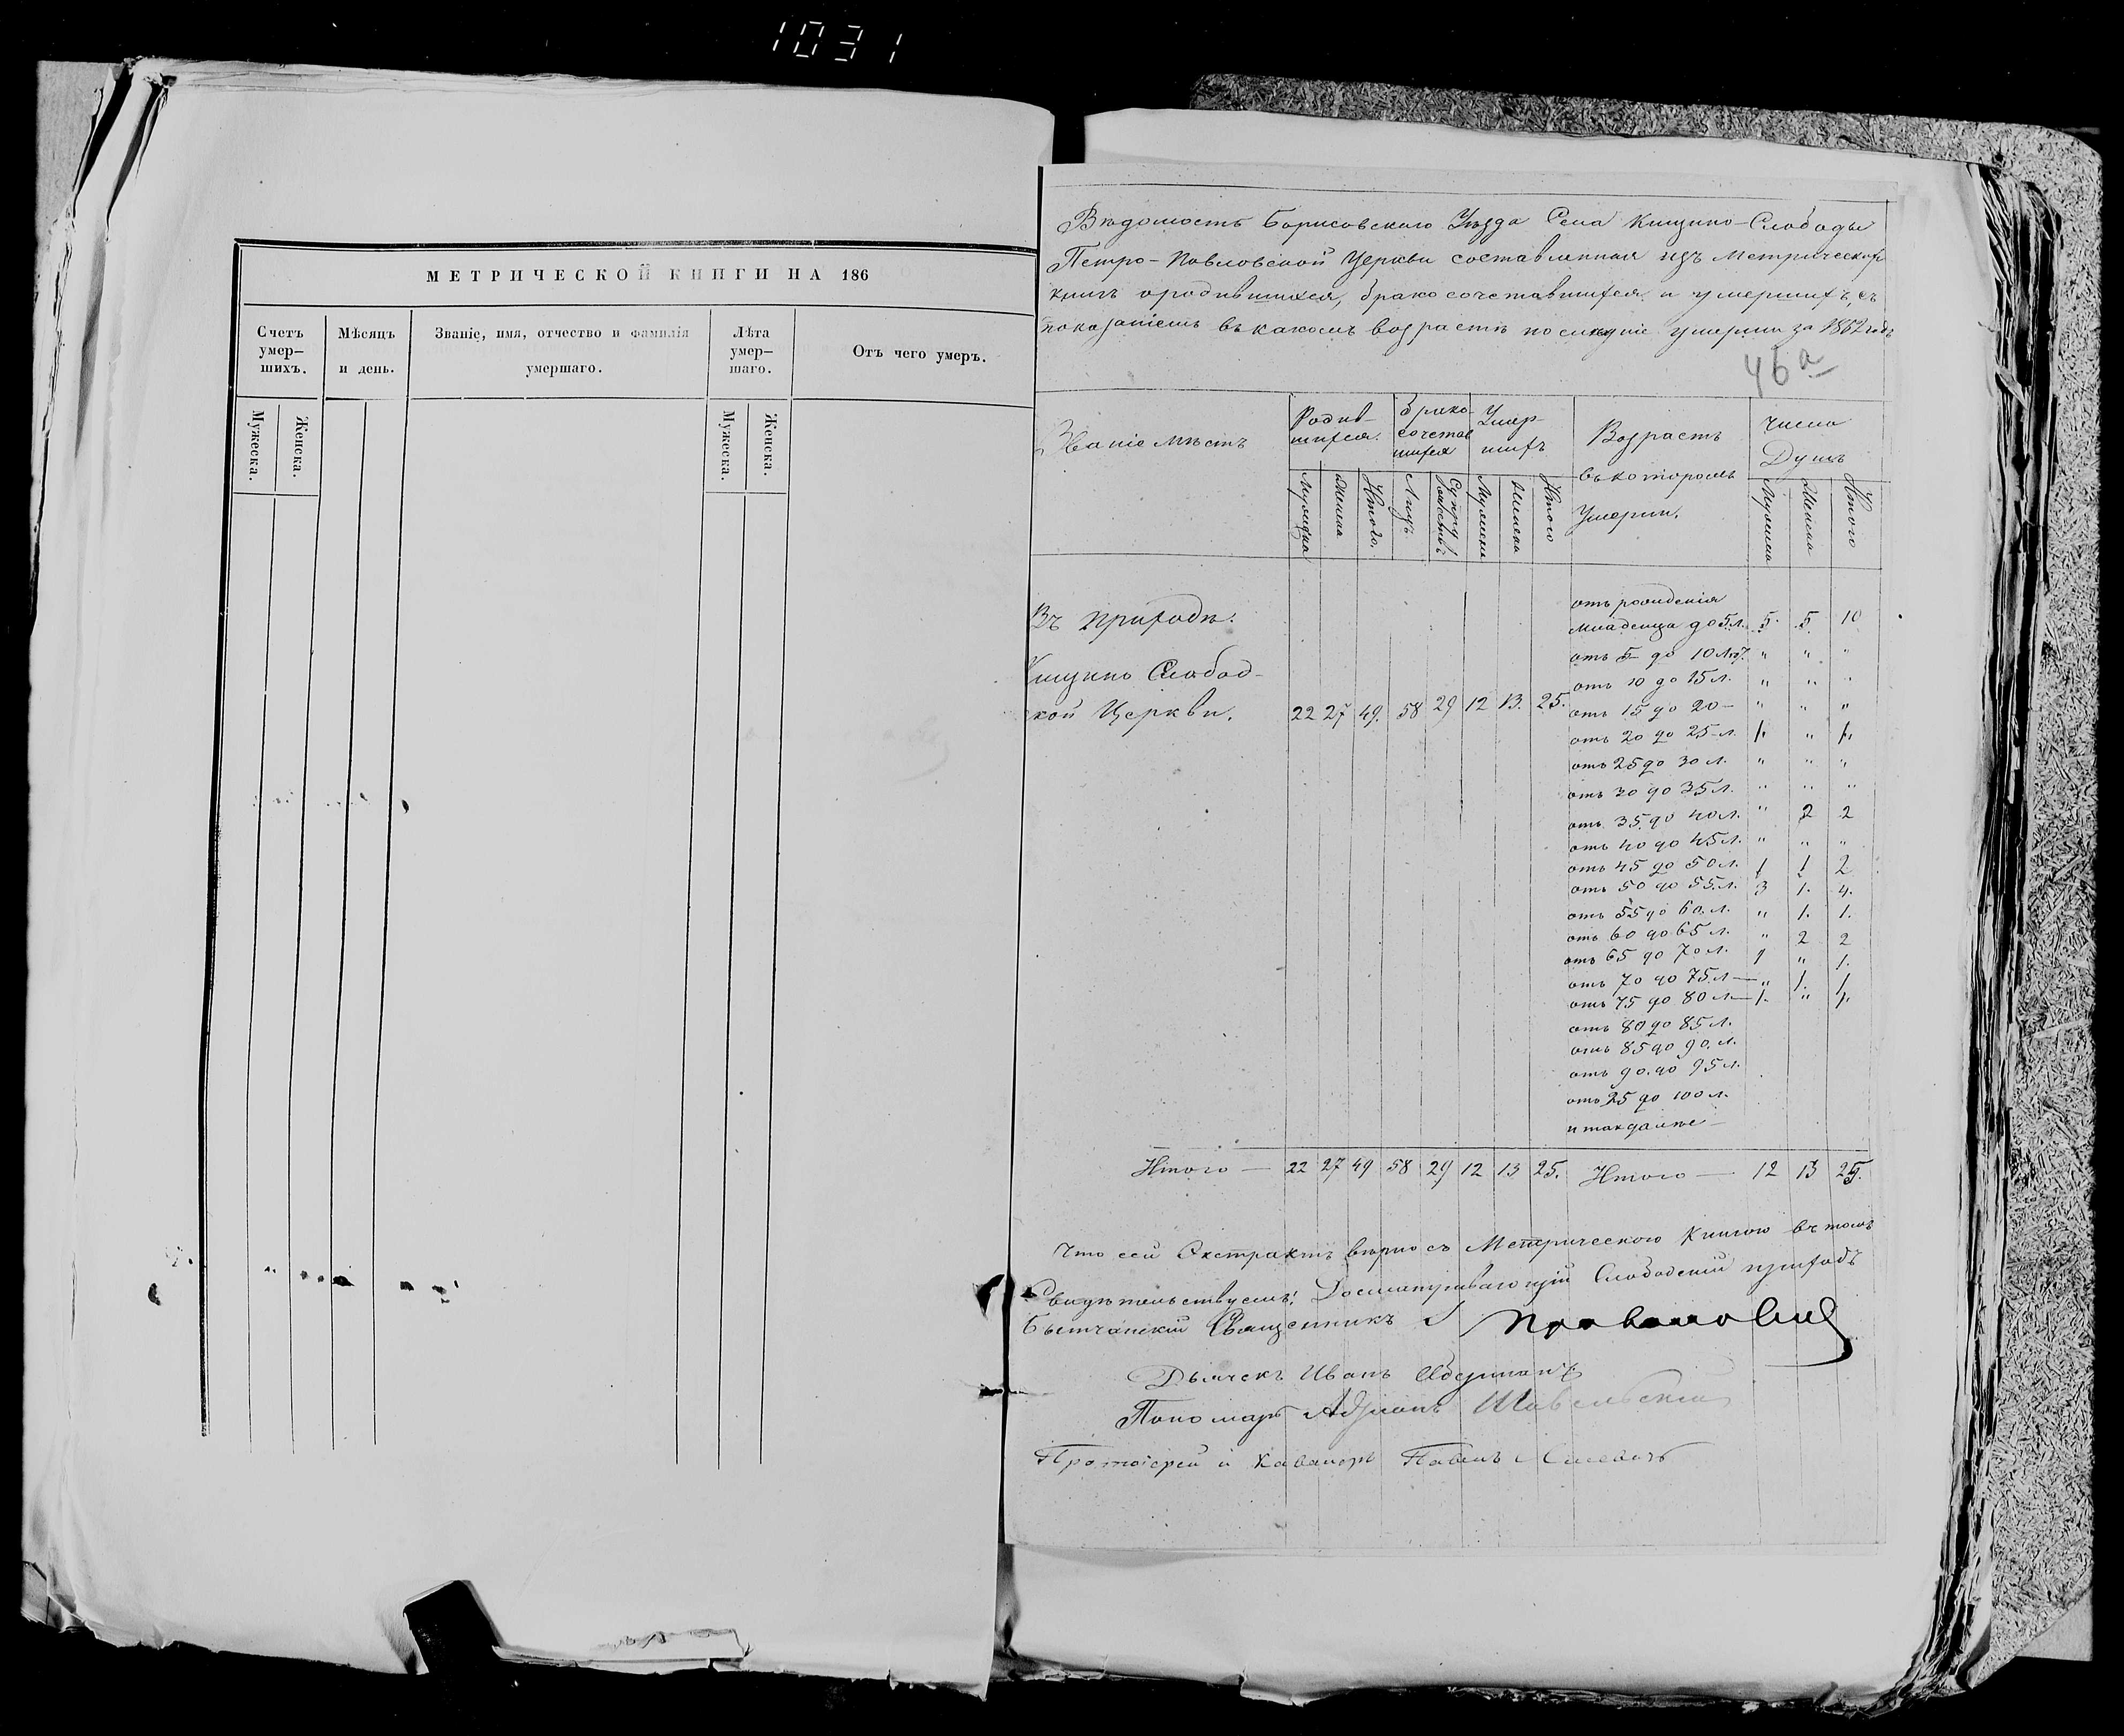 1031
МЕТРИЧЕСКОЙ КНИГИ НА 186
Счетъ умер– шихъ.
Мѣсяцъ и день.
Званіе, имя, отчество и фамилія умершаго.
Лѣта умер– шаго.
Отъ чего умеръ.
Мужеска. Женска. Мужеска. Женска.
Вѣдомость Борисовскаго Уѣзда Села Кищино-Слободы
Петро-Павловской Церкви составленная изъ Метрической
книгъ о родившихся, бракосочетавшихся и умершихъ, съ
показаніемъ въ какомъ возрастѣ послѣдніе умерли за 1862 годъ
46а
Званіе мѣстъ
Родив– шихся.
Брако– сочетав шихся
Умер– шихъ
Возрастъ въ которомъ Умерли.
Число Душъ
Мужска Женска Итого. Лицъ Супружествъ Мужеска Женска Итого Мужеска Женска Итого
Въ приходѣ.
Кищино Слобод–
кой Церкви. 22 27 49. 58 29 12 13. 25.
отъ рожденія
младенца до 5 л. 5. 5. 10
отъ 5 до 10 лѣт. " " "
отъ 10 до 15 л. " " "
отъ 15 до 20 – " " "
отъ 20 до 25 л. 1. " 1.
отъ 25 до 30 л. " " "
отъ 30 до 35 л. " " "
отъ 35 до 40 л. " 2 2
отъ 40 до 45 л. " " "
отъ 45 до 50 л. 1 1 2
отъ 50 до 55 л. 3 1. 4.
отъ 55 до 60 л. " 1. 1.
отъ 60 до 65 л. " 2 2
отъ 65 до 70 л. 1 " 1.
отъ 70 до 75 л — " 1. 1
отъ 75 до 80 л — 1. " 1.
отъ 80 до 85 л.
отъ 85 до 90. л.
отъ 90. до 95 л.
отъ 95 до 100 л.
и такъ далѣе –
Итого — 22 27 49 58 29 12 13 25. Итого — 12 13 25.
Что сей Экстрактъ вѣрно съ Метрическою Книгою въ томъ
Свидѣтельствуемъ: Досматривающій Слободскій приходъ
Бытчанскій Священникъ
Дьячекъ Иванъ
Пономарь Адріанъ Шавельскій
Протоіерей и Кавалеръ Павелъ